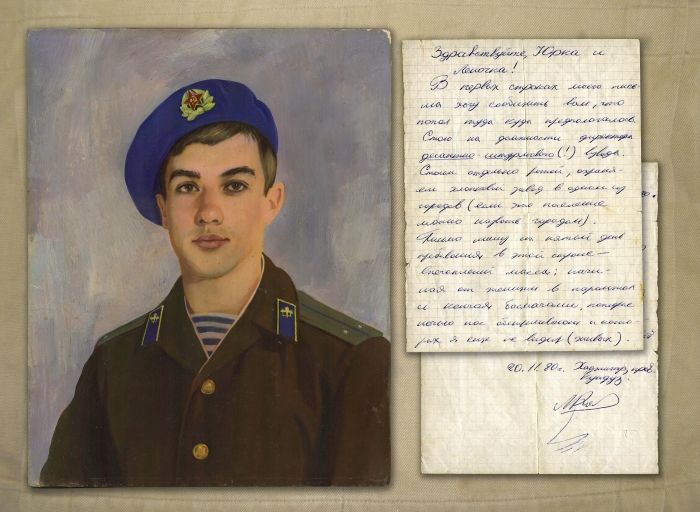 Здравствуйте, Юрка и
Леночка!
В первых строках моего пись-
ма хочу сообщить вам, что
попал туда куда предполагалось.
Стою на должности директора
десантно-штурмового(!) взвода.
Стоим отдельно ротой, охраня-
ем хлопковый завод в одном из
городов (если это поселение
можно назвать городом).
Письмо пишу на пятый день
пребывания в этой стране —
впечатлений масса: начи-
ная от женщин в паранжах
и кончая басмачами, которые
ночью нас обстреливают и кото-
рых я еще не видел (живых).
20.11.80г. пров.
Кундуз.